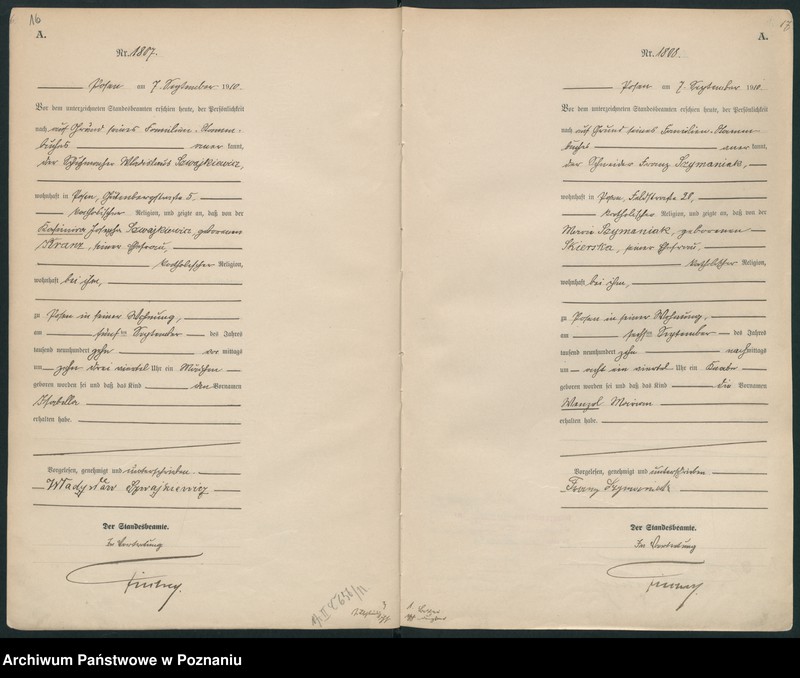 16
A.
Nr. 1807.
Posen am 7 September 1910.
Vor dem unterzeichneten Standesbeamten erschien heute, der Persönlichkeit
nach auf Grund seines Familien-Stamm-
buches anerkannt,
der Schuhmacher Wladislaus Szwajkiewicz,
wohnhaft in Posen, Gutenbergstraße 5,
katholischer Religion, und zeigte an, daß von der
Kasimira Josepha Szwajkiewicz, geborenen
Kranz, seiner Ehefrau,
katholischer Religion,
wohnhaft bei ihm,
zu Posen in seiner Wohnung,
am fünften September des Jahres
tausend neunhundert zehn vormittags
um zehn drei viertel Uhr ein Mädchen
geboren worden sei und daß das Kind den Vornamen
Isabella
erhalten habe.
Vorgelesen, genehmigt und unterschrieben
Władysław Szwajkiewicz
Der Standesbeamte.
In Vertretung
17
A.
Nr. 1808.
Posen am 7 September 1910.
Vor dem unterzeichneten Standesbeamten erschien heute, der Persönlichkeit
nach auf Grund seines Familien-Stamm-
buches anerkannt,
der Schneider Franz Szymaniak,
wohnhaft in Posen, Feldstraße 28,
katholischer Religion, und zeigte an, daß von der
Maria Szymaniak, geborenen
Skiorska, seiner Ehefrau,
katholischer Religion,
wohnhaft bei ihm,
zu Posen in seiner Wohnung,
am sechsten September des Jahres
tausend neunhundert zehn nachmittags
um acht ein viertel Uhr ein Knabe
geboren worden sei und daß das Kind die Vornamen
Wenzel Marian
erhalten habe.
Vorgelesen, genehmigt und unterschrieben
Franz Szymaniak
Der Standesbeamte.
In Vertretung
Archiwum Państwowe w Poznaniu